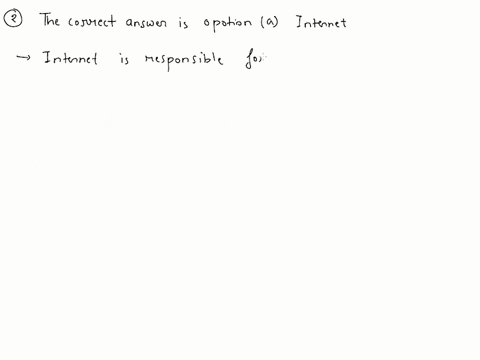 ② The correct answer is opotion (a) Internet
→ Internet is responsible for